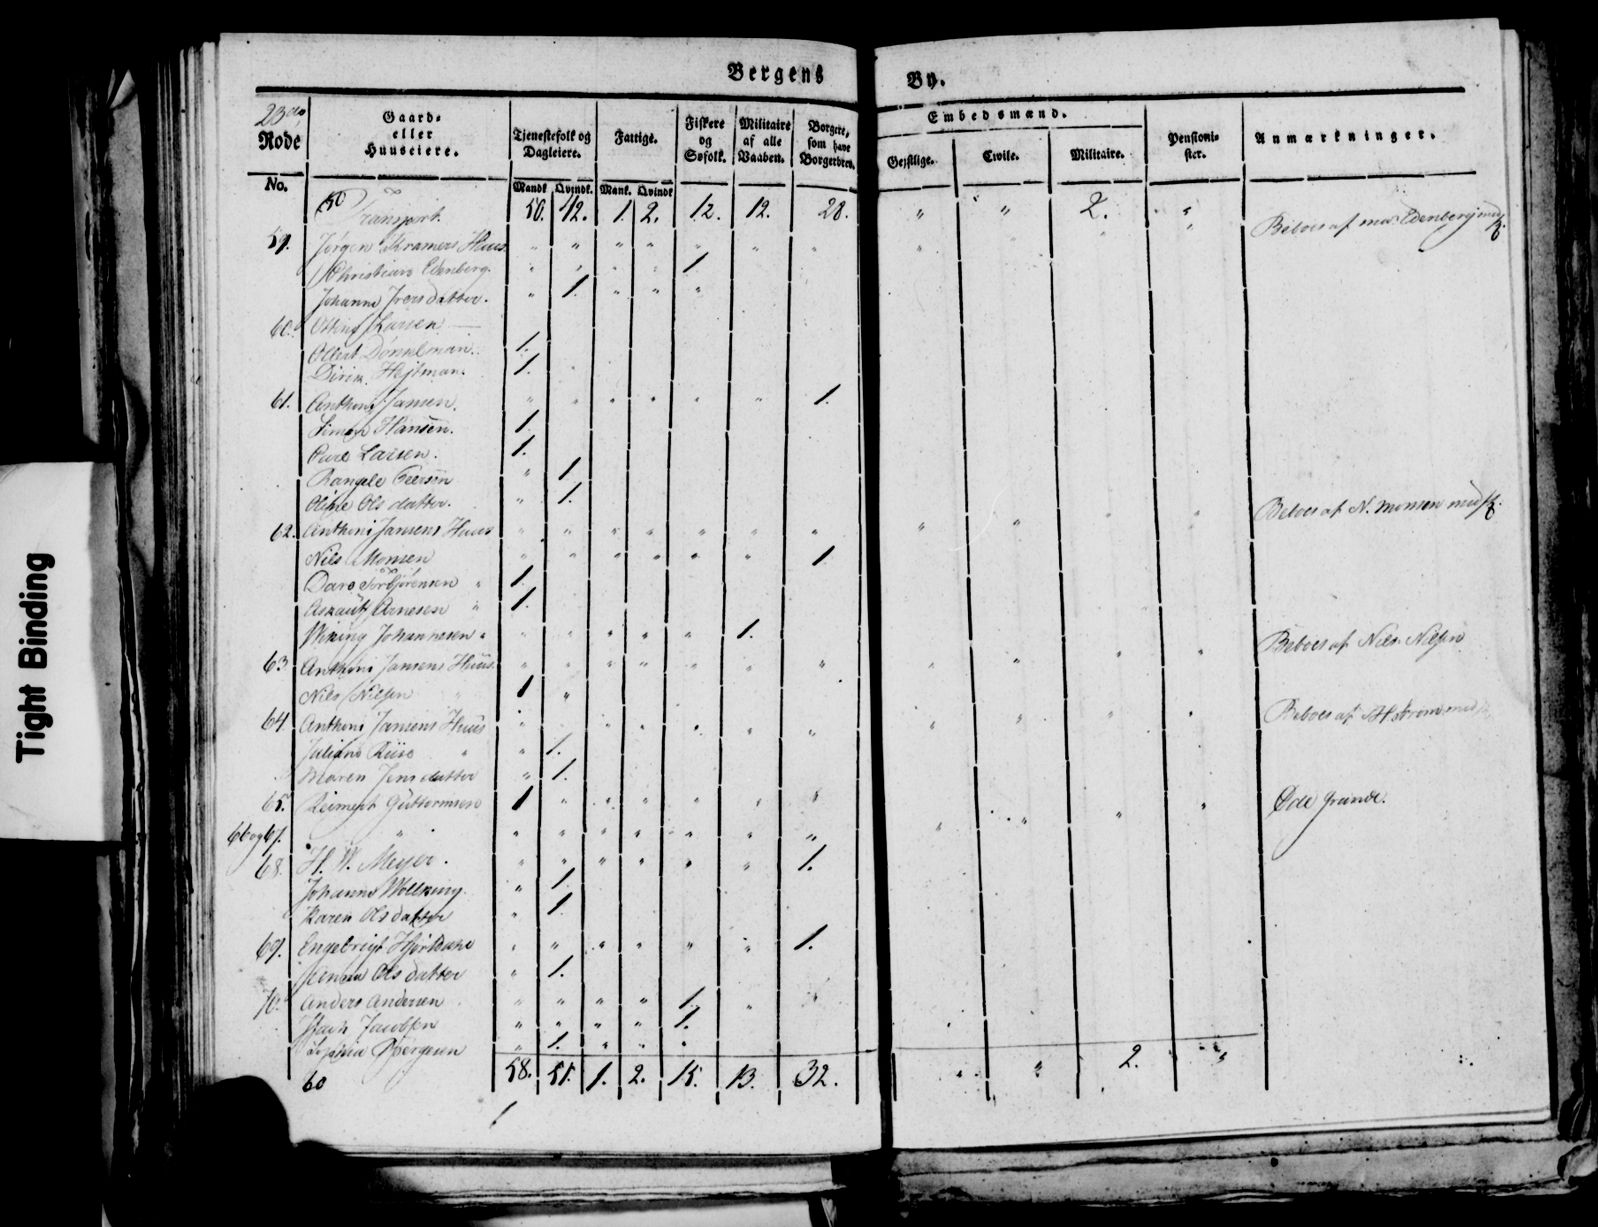 Tight Binding
Bergens By.
23de Rode
Gaard- eller Huuseiere.
Tjenestefolk og Dagleiere.
Fattige.
Fiskere og Søfolk.
Militaire af alle Vaaben.
Borgere, som have Borgerbrev.
Embedsmænd.
Gejstlige.
Civile.
Militaire.
Pensionister.
Anmærkninger.
No.
Mandk. Qvindk. Mank. Qvindk
50 Transport 50. 42. 1. 2. 12. 12. 28. " " 2. "
59. Jørgen Kramers Huus " " " " " " " Beboes af mad Edenberg med
Christians Edenberg. " " " " 1
Johanne Iversdatter. " 1. " " "
60. Larsen
Ollert Dønnelman. 1.
Dirik Hejtman. 1.
61. Anthoni Jansen. " " " " " " 1.
Simon Hansen. 1.
Carl Larsen. 1.
Rangele " 1.
Oline Olsdatter. " 1.
62. Anthoni Jansens Huus " " " " " " " Beboes af N. Monsen med
Nils Monsen " " " " " " 1
Torbjørensen " 1.
Arnesen " 1.
Johannesen " " " " " " 1.
63. Anthoni Jansens Huus. " " " " " " " Beboes af Nils Nilsen
Nils Nilsen 1 "
64. Anthoni Jansens Huus " " " " " " Beboes af
Juliane Riise " " 1.
Maren Jensdatter " 1.
65. Reimert Guttormsen 1 " " " " " " Øde Grunde.
66 og 67. " " " " " " " "
68. H. W. Meyer. " " " " " " 1.
Johanne Wellking. " 1.
Karen Olsdatter " 1.
69. Engebrigt " " " " " " 1.
Olsdatter " 1.
70. Anders Andersen " " " " 1. " "
Jacobsen " " " " 1.
Børgesen " 1. " " "
60 58. 51. 1. 2. 15. 13. 32. " " 2. "